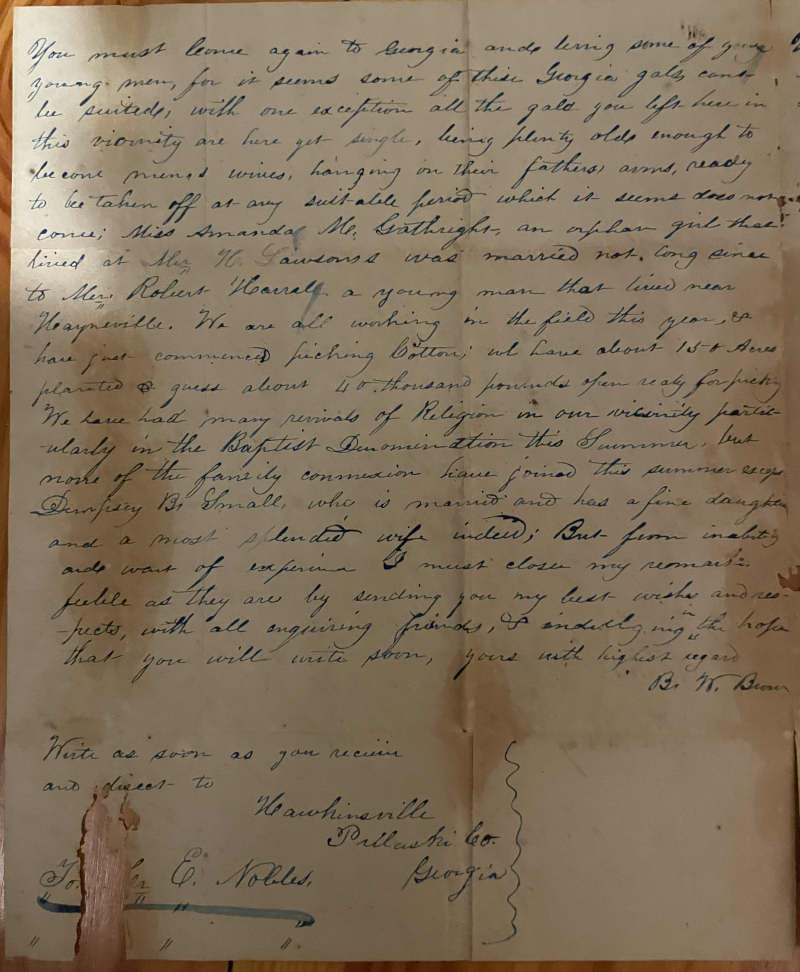 You must Come again to Georgia and bring some of your
young men, for it seems some of these Georgia gals cant
be suited, with one exception all the gals you left here in
this vicinity are here yet single, being plenty old enough to
become mens wives, hanging on their fathers arms, ready
to be taken off at any suitable period which it seems does not
come; Miss Amanda M. Gathright, an orphan girl that
lived at Mr H. Lawsons was married not long since
to Mr. Robert Harrell a young man that lived near
Hayneville. We are all working in the field this year, &
have just commenced picking Cotton; we have about 150 Acres
planted & guess about 40 thousand pounds open ready for picking
We have had many revivals of Religion in our vicinity partic-
ularly in the Baptist Denomination this Summer, but
none of the family connexion have joined this summer except
Dempsey B. Small, who is married and has a fine daughter
and a most splendid wife indeed; But from inability
and want of I must close my remarks
feeble as they are by sending you my best wishes and res-
-pects, with all enquiring friends, & indulging in the hope
that you will write soon, yours with highest regard
B. W. Brown
Write as soon as you receive
and direct to
Hawkinsville
Pulaski Co.
Georgia
To. Mr E. Nobles.